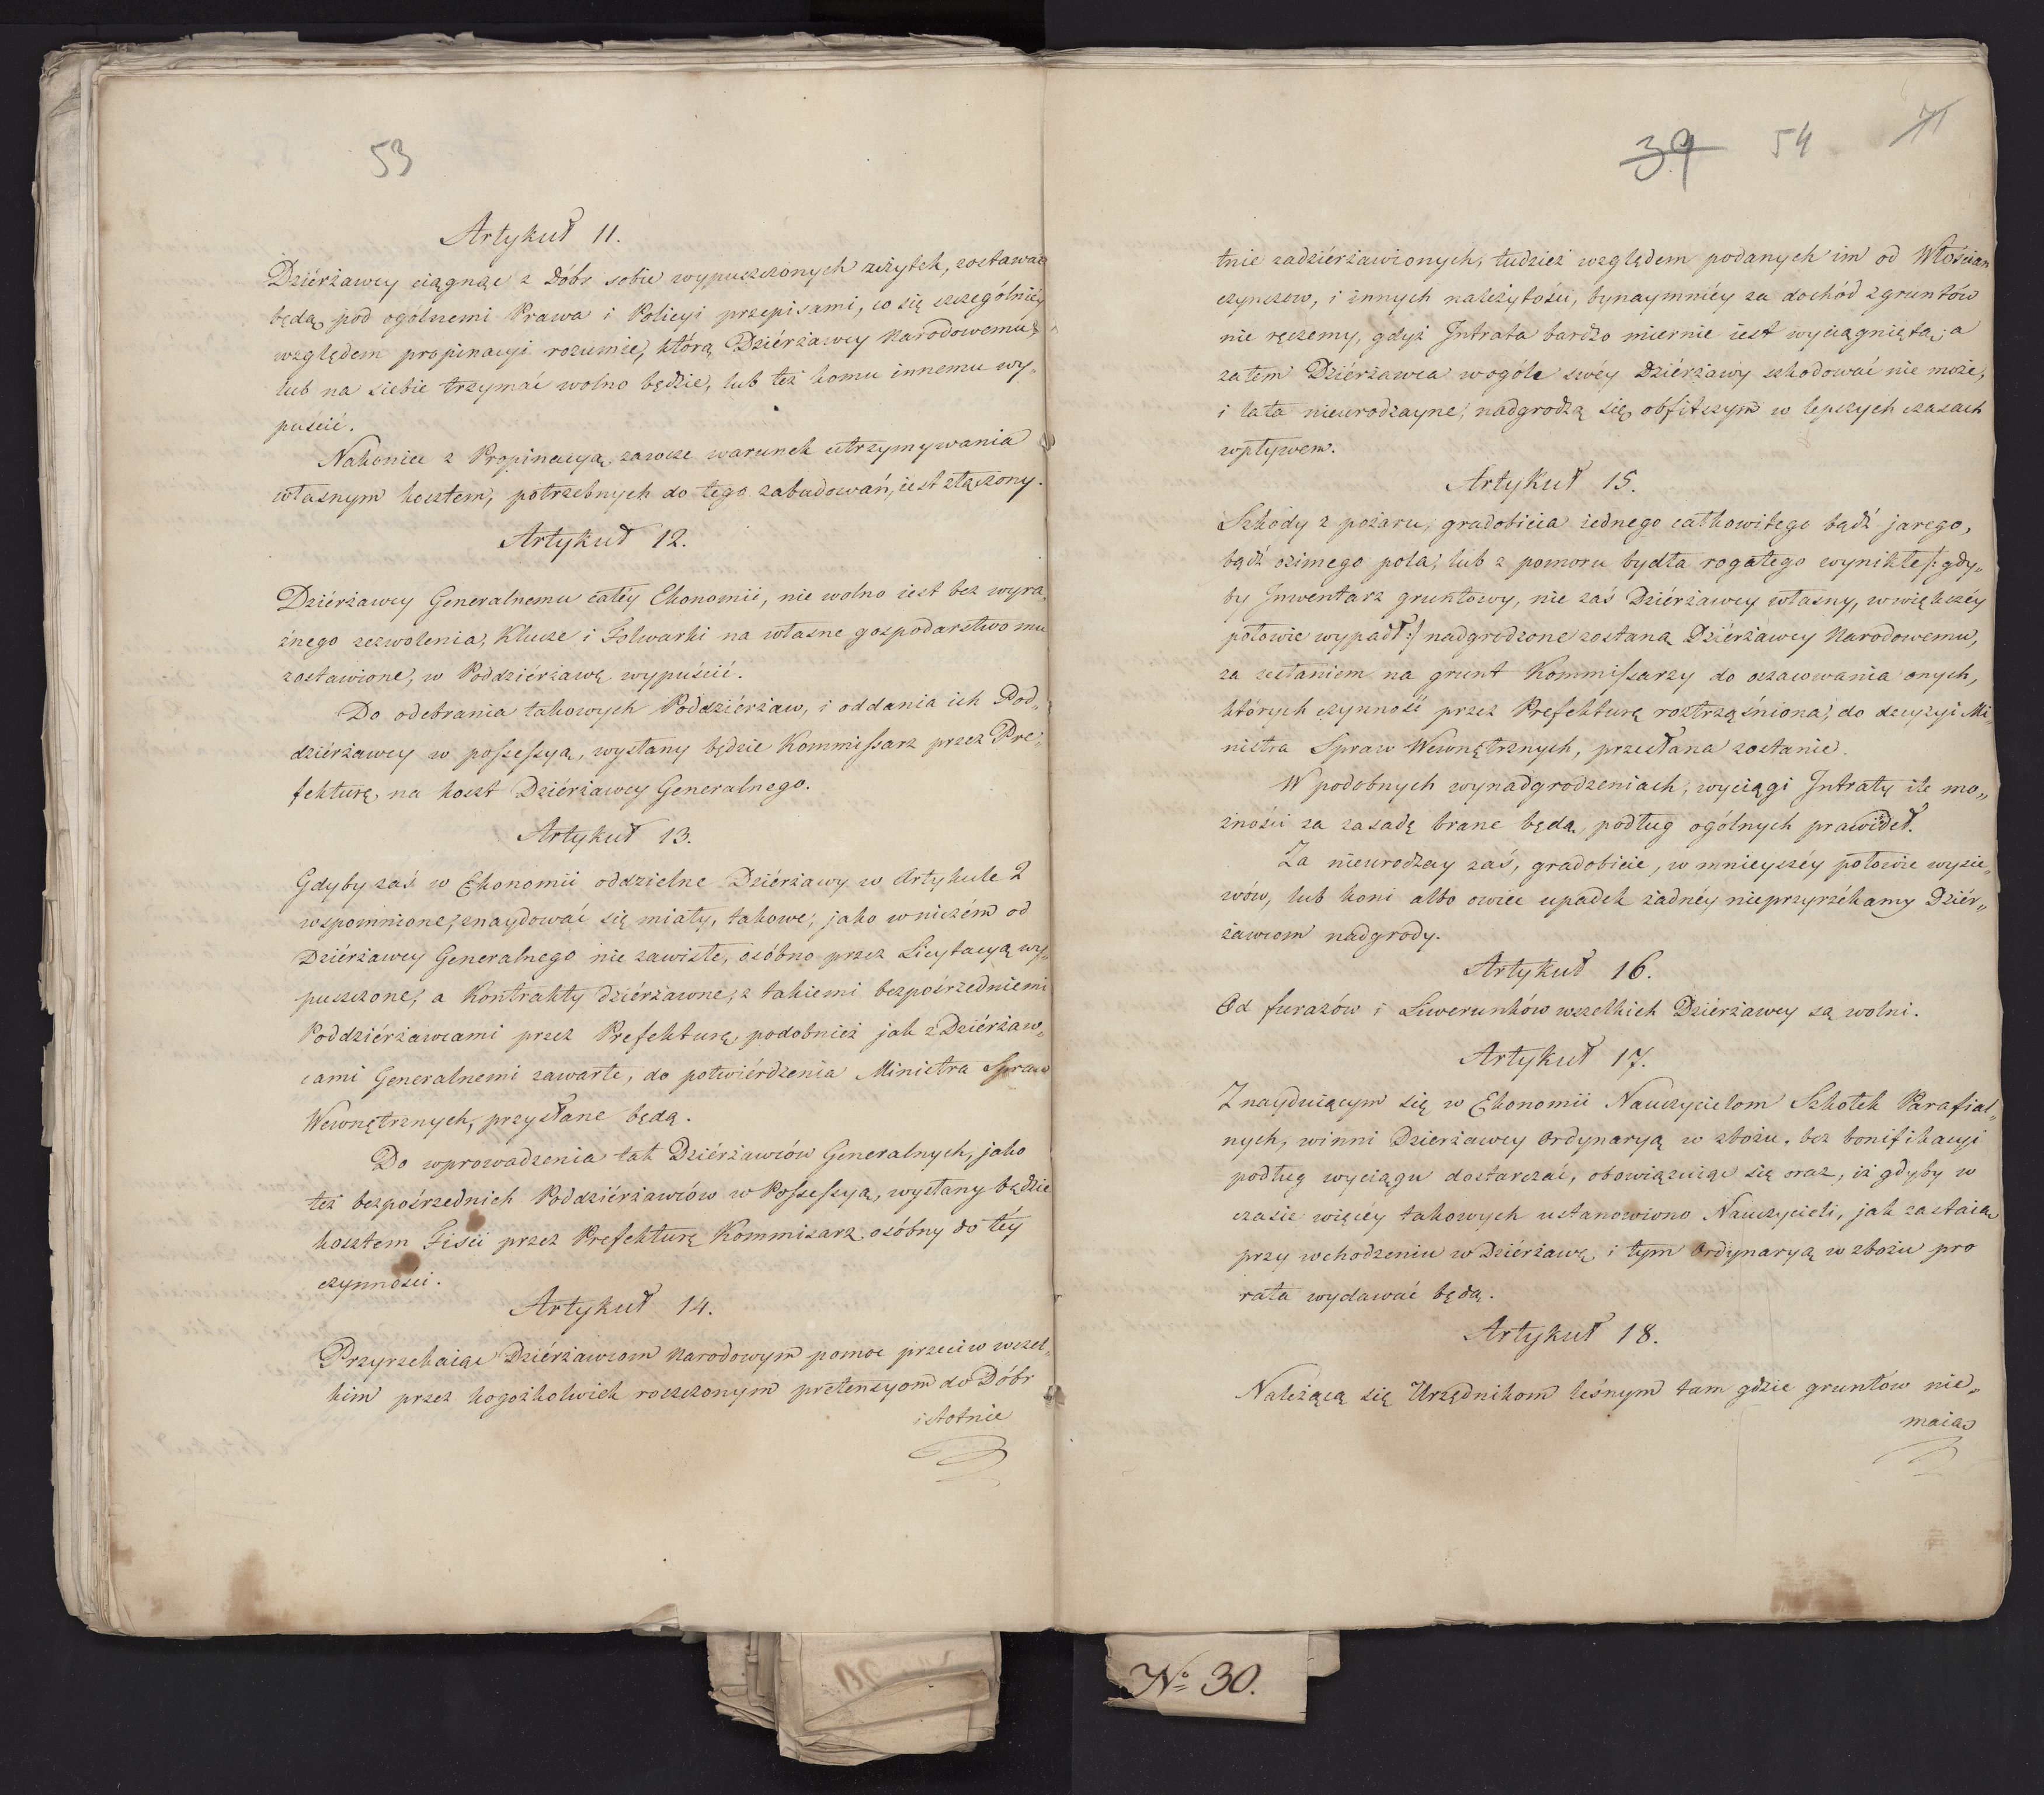 53
Artykuł 11.
Dziérżawcy ciągnąc z dóbr sobie wypuszczonych zużytek, zostawać
będą pod ogólnemi Prawa i Policyi przepisami, co się szczególniéy
względem propinacyi rozumie, którą Dziérżawcy Narodowemu,
lub na siebie trzymać wolno będzie, lub też komu innemu wy„
puścić.
Nakoniec z Propinacyą zawsze warunek utrzymywania
własnym kosztem, potrzebnych do tego zabudowań, iest złączony.
Artykuł 12.
Dziérżawcy Generalnemu całéy Ekonomii, nie wolno iest bez wyra„
źnego zezwolenia, Klucze i Folwarki na własne gospodarstwo mu
zostawione, w Poddziérżawę wypuścić.
Do odebrania takowych Poddziérżaw, i oddania ich Pod„
dziérżawcy w possessyą, wysłany będzie Kommissarz przez Pre„
fekturę, na koszt Dziérżawcy Generalnego.
Artykuł 13.
Gdyby zaś w Ekonomii oddzielne Dziérżawy w Artykule 2
wspomnione, znaydować się miały, takowe, jako wniczém od
Dziérżawcy Generalnego nie zawisłe, osóbno przez Licytacyą wy„
puszczone, a Kontrakty dziérżawne, z takiemi bezpośrzedniemi
Poddziérżawcami przez Prefekturę, podobnież jak z Dziérżaw„
cami Generalnemi zawarte, do potwiérdzenia Ministra Spraw
Wewnętrznych, przysłane będą.
Do wprowadzenia tak Dziérżawców Generalnych, jako
też bezpośrzednich Poddziérżawców w Possessyą, wysłany będzie
kosztem Fisci przez Prefekturę Kommisarz osóbny do téy
czynności.
Artykuł 14.
Przyrzekaiąc Dziérżawcom Narodowym pomoc przeciw wszel„
kim przez kogożkolwiek roszczonym pretensyom do Dóbr
istotnie
39 54 71
tnie zadziérżawionych, tudzież względem podanych im od Włościan
czynszow, i innych należytości, bynaymniéy za dochód z gruntów
nie ręczemy, gdyż Intrata bardzo miernie iest wyciągnięta, a
zatém Dziérżawca wogóle swéy Dziérżawy szkodować nie może,
i lata nieurodzayne, nadgrodzą się obfitszym w lepszych czasach
wpływem.
Artykuł 15.
Szkody z pożaru, gradobicia iednego całkowitego bądź jarego,
bądź ozimego pola, lub z pomoru bydła rogatego wynikłe /: gdy„
by Inwentarz gruntowy, nie zaś Dziérżawcy własny, w większéy
połowie wypadł :/ nadgrodzone zostaną Dziérżawcy Narodowemu,
za zesłaniem na grunt Kommissarzy do oszacowania onych,
których czynność przez Prefekturę roztrząśniona, do decyzyi Mi„
nistra Spraw Wewnętrznych, przesłana zostanie.
W podobnych wynadgrodzeniach, wyciągi Intraty ile mo„
żności za zasadę brane będą, podług ogólnych prawideł.
Za nieurodzay zaś, gradobicie, w mnieyszéy połowie wysie„
wów, lub koni albo owiec upadek żadnéy nieprzyrzékamy Dziér„
żawcom nadgrody.
Artykuł 16.
Od furażów i Liwerunków wszelkich Dziérżawcy są wolni.
Artykuł 17.
Znayduiącym się w Ekonomii Nauczycielom Szkołek Parafial„
nych, winni Dzierżawcy Ordynaryą w zbożu, bez bonifikacyi
podług wyciągu dostarczać, obowiązuiąc się oraz, iż gdyby w
czasie więcéy takowych ustanowiono Nauczycieli, jak zastaią
przy wchodzeniu w Dziérżawę, i tym Ordynaryą w zbożu pro
rata wydawać będą.
Artykuł 18.
Należącą się Urzędnikom leśnym tam gdzie gruntów nie„
maią
No 30.